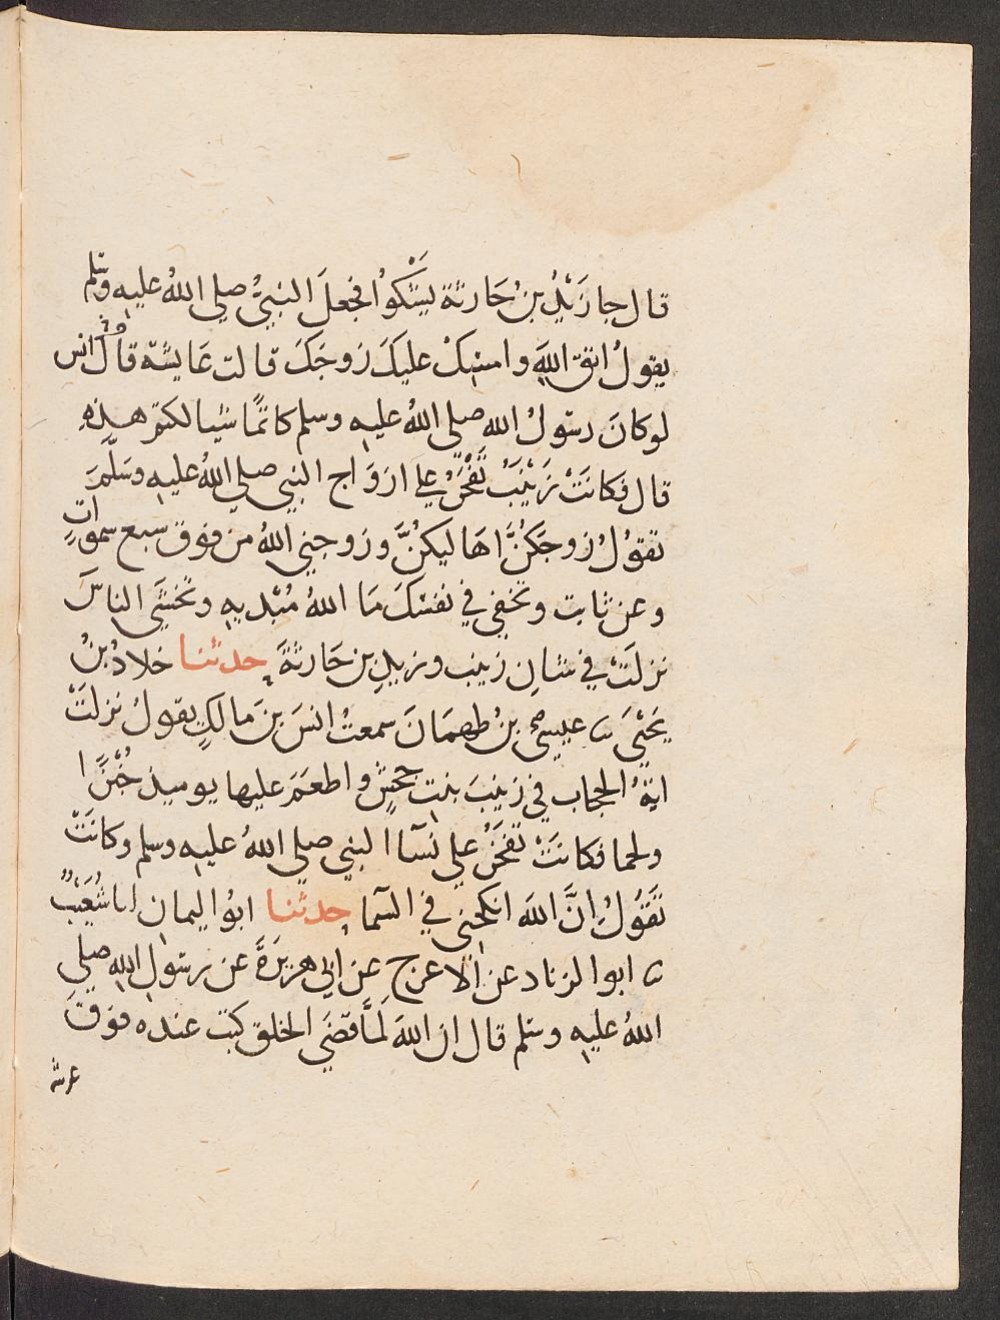 قال جا زَيْدُ بنُ حَارثة يَشْكوا فجعلَ النبيُّ صلى اللهُ عليه وسَلم
يقولُ اتق اللهَ وامسِكْ عليكَ زَوجَكَ قالت عَايشة قالَ انس
لو كانَ رسُولُ الله صلى اللهُ عليه وسلم كاتمًا شيا لكتمَ هذِه
قال فكانَتْ زَيْنَبُ تَفْخَرُ على ازوَاج النبي صلى اللهُ عليه وسَلَّمَ
تقوُلُ زوجَكُنَّ اهَاليكنَّ وزوجنى اللهُ من فوق سبع سموَاتٍ
وعن ثابت وتخفى في نفسِكَ مَا اللهُ مُبْديه وتخشَى الناسَ
نزلَتْ في شان زينب وزيدِ بن حَارثةَ حدثنا خلادُ بنُ
يَحْيَى ثنا عيسى بنُ طهمَانَ سمعتُ انسَ بنَ مالكٍ يقولُ نزلَتْ
ايةُ الحجاب في زينبَ بنت جحشٍ واطعَمَ عليها يوميذ خُبْزًا
ولحما فكانَتْ تفخَرُ على نسَآ النبي صلى اللهُ عليه وسلم وكانَتْ
تَقوُلُ اِنَّ اللهَ انكحنى في السَما حدثنا ابوُ اليمان انا شُعَيْبٌ
ثنا ابوا الزناد عن الاعرج عن ابى هريرَةَ عن رسُولِ الله صلى
اللهُ عليه وسَلم قال ان اللهَ لَمَّا قضَى الخلق كتبَ عنده فوقَ
عرشه